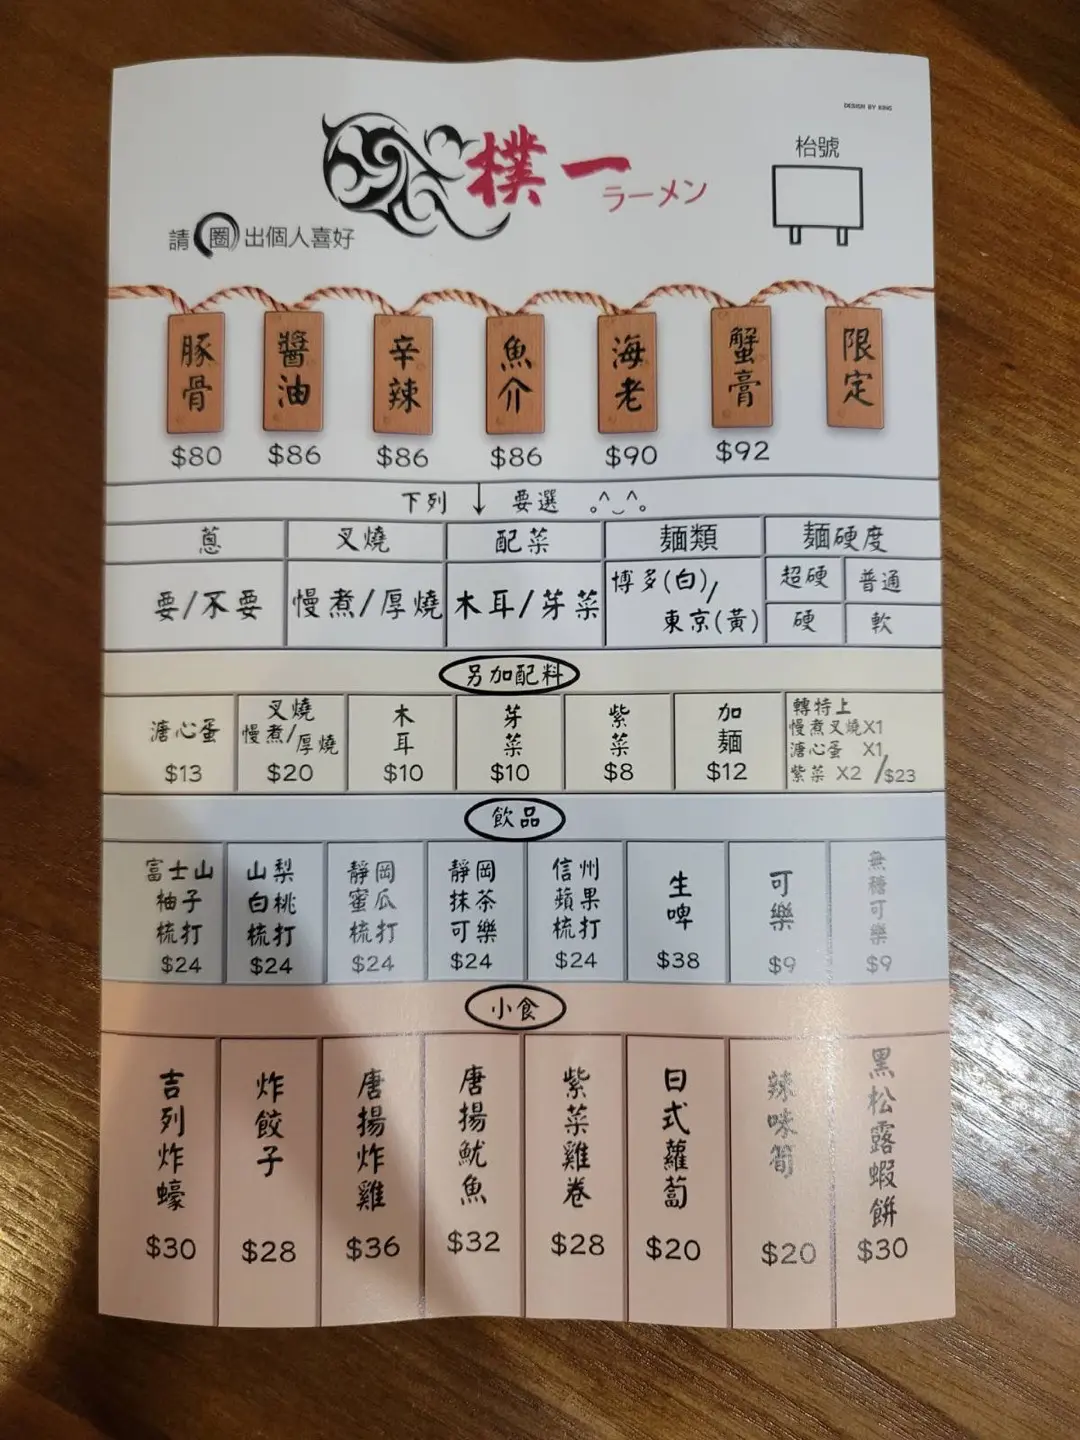 DESIGN BY KING
樸一
ラーメン
枱號
請圈出個人喜好
豚骨 醬油 辛辣 魚介 海老 蟹膏 限定
$80 $86 $86 $86 $90 $92
下列 ↓ 要選 。^‿^。
蔥 叉燒 配菜 麵類 麵硬度
要/不要 慢煮/厚燒 木耳/芽菜 博多(白)/東京(黃) 超硬 普通 硬 軟
另加配料
溏心蛋 $13
叉燒 慢煮/厚燒 $20
木耳 $10
芽菜 $10
紫菜 $8
加麵 $12
轉特上
慢煮叉燒X1
溏心蛋 X1
紫菜 X2 /$23
飲品
富士山柚子梳打 $24
山梨白桃梳打 $24
靜岡蜜瓜梳打 $24
靜岡抹茶可樂 $24
信州蘋果梳打 $24
生啤 $38
可樂 $9
無糖可樂 $9
小食
吉列炸蠔 $30
炸餃子 $28
唐揚炸雞 $36
唐揚魷魚 $32
紫菜雞卷 $28
日式蘿蔔 $20
辣味筍 $20
黑松露蝦餅 $30